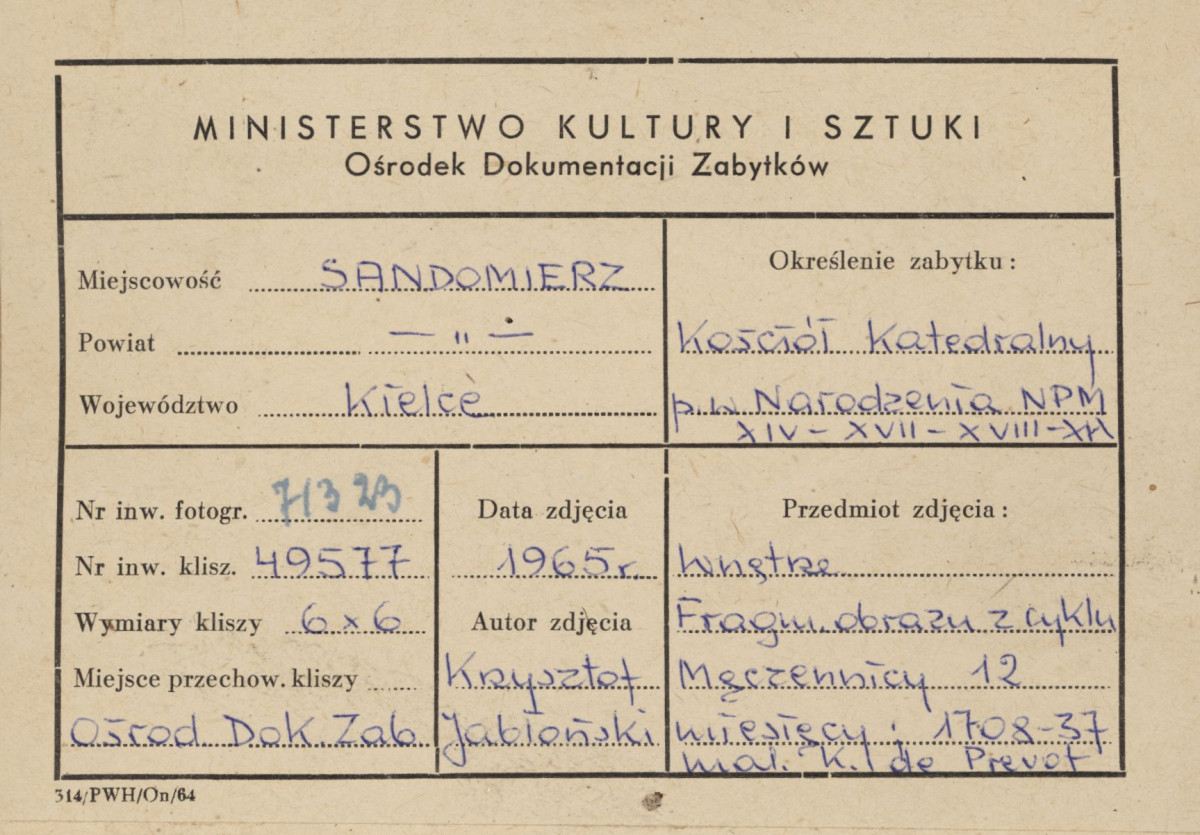 MINISTERSTWO KULTURY I SZTUKI
Ośrodek Dokumentacji Zabytków
Miejscowość SANDOMIERZ
Powiat — " —
Województwo Kielce
Określenie zabytku:
Kościół Katedralny
p.w Narodzenia NPM
XIV - XVII - XVIII - XIX
Nr inw. fotogr. 71323
Nr inw. klisz. 49577
Wymiary kliszy 6 x 6
Miejsce przechow. kliszy
Ośrod Dok Zab
Data zdjęcia
1965 r.
Autor zdjęcia
Krzysztof
Jabłoński
Przedmiot zdjęcia:
Wnętrze
Fragm. obrazu z cyklu
Męczennicy 12
miesięcy: 1708-37
mal. K. de Prevot
314/PWH/On/64